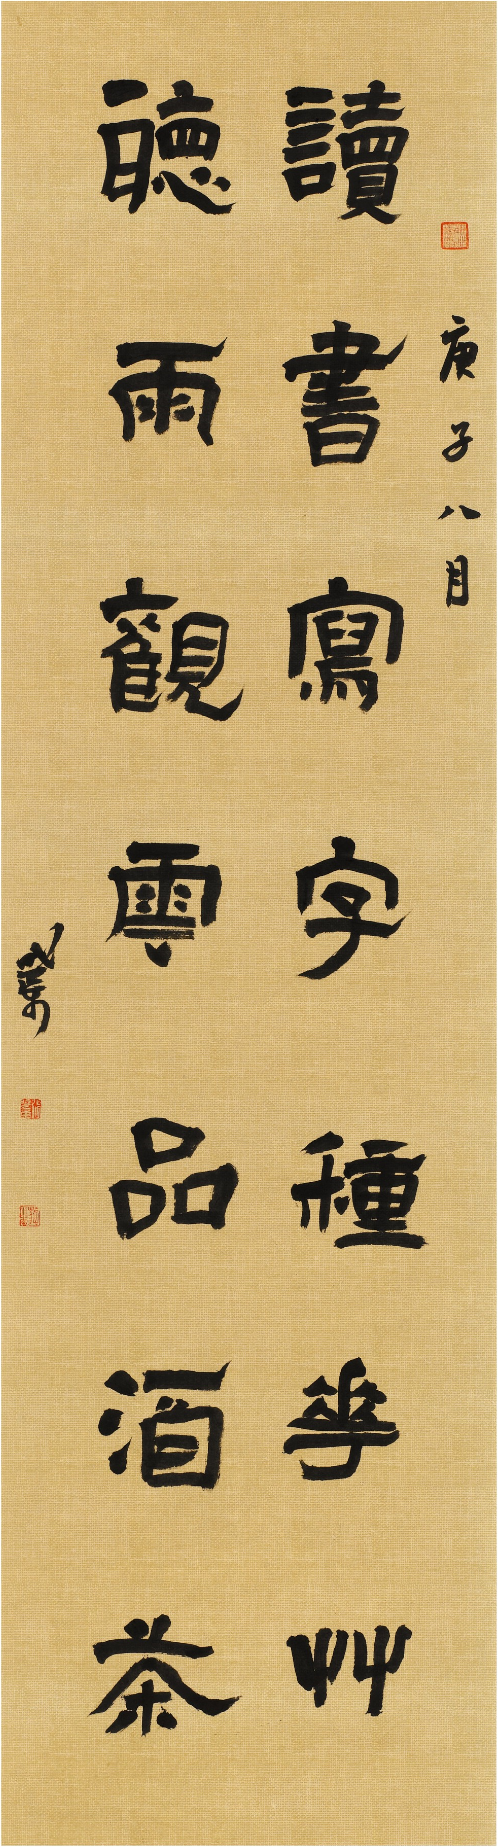 庚子八月
讀書寫字種花艸
聽雨觀雲品酒茶